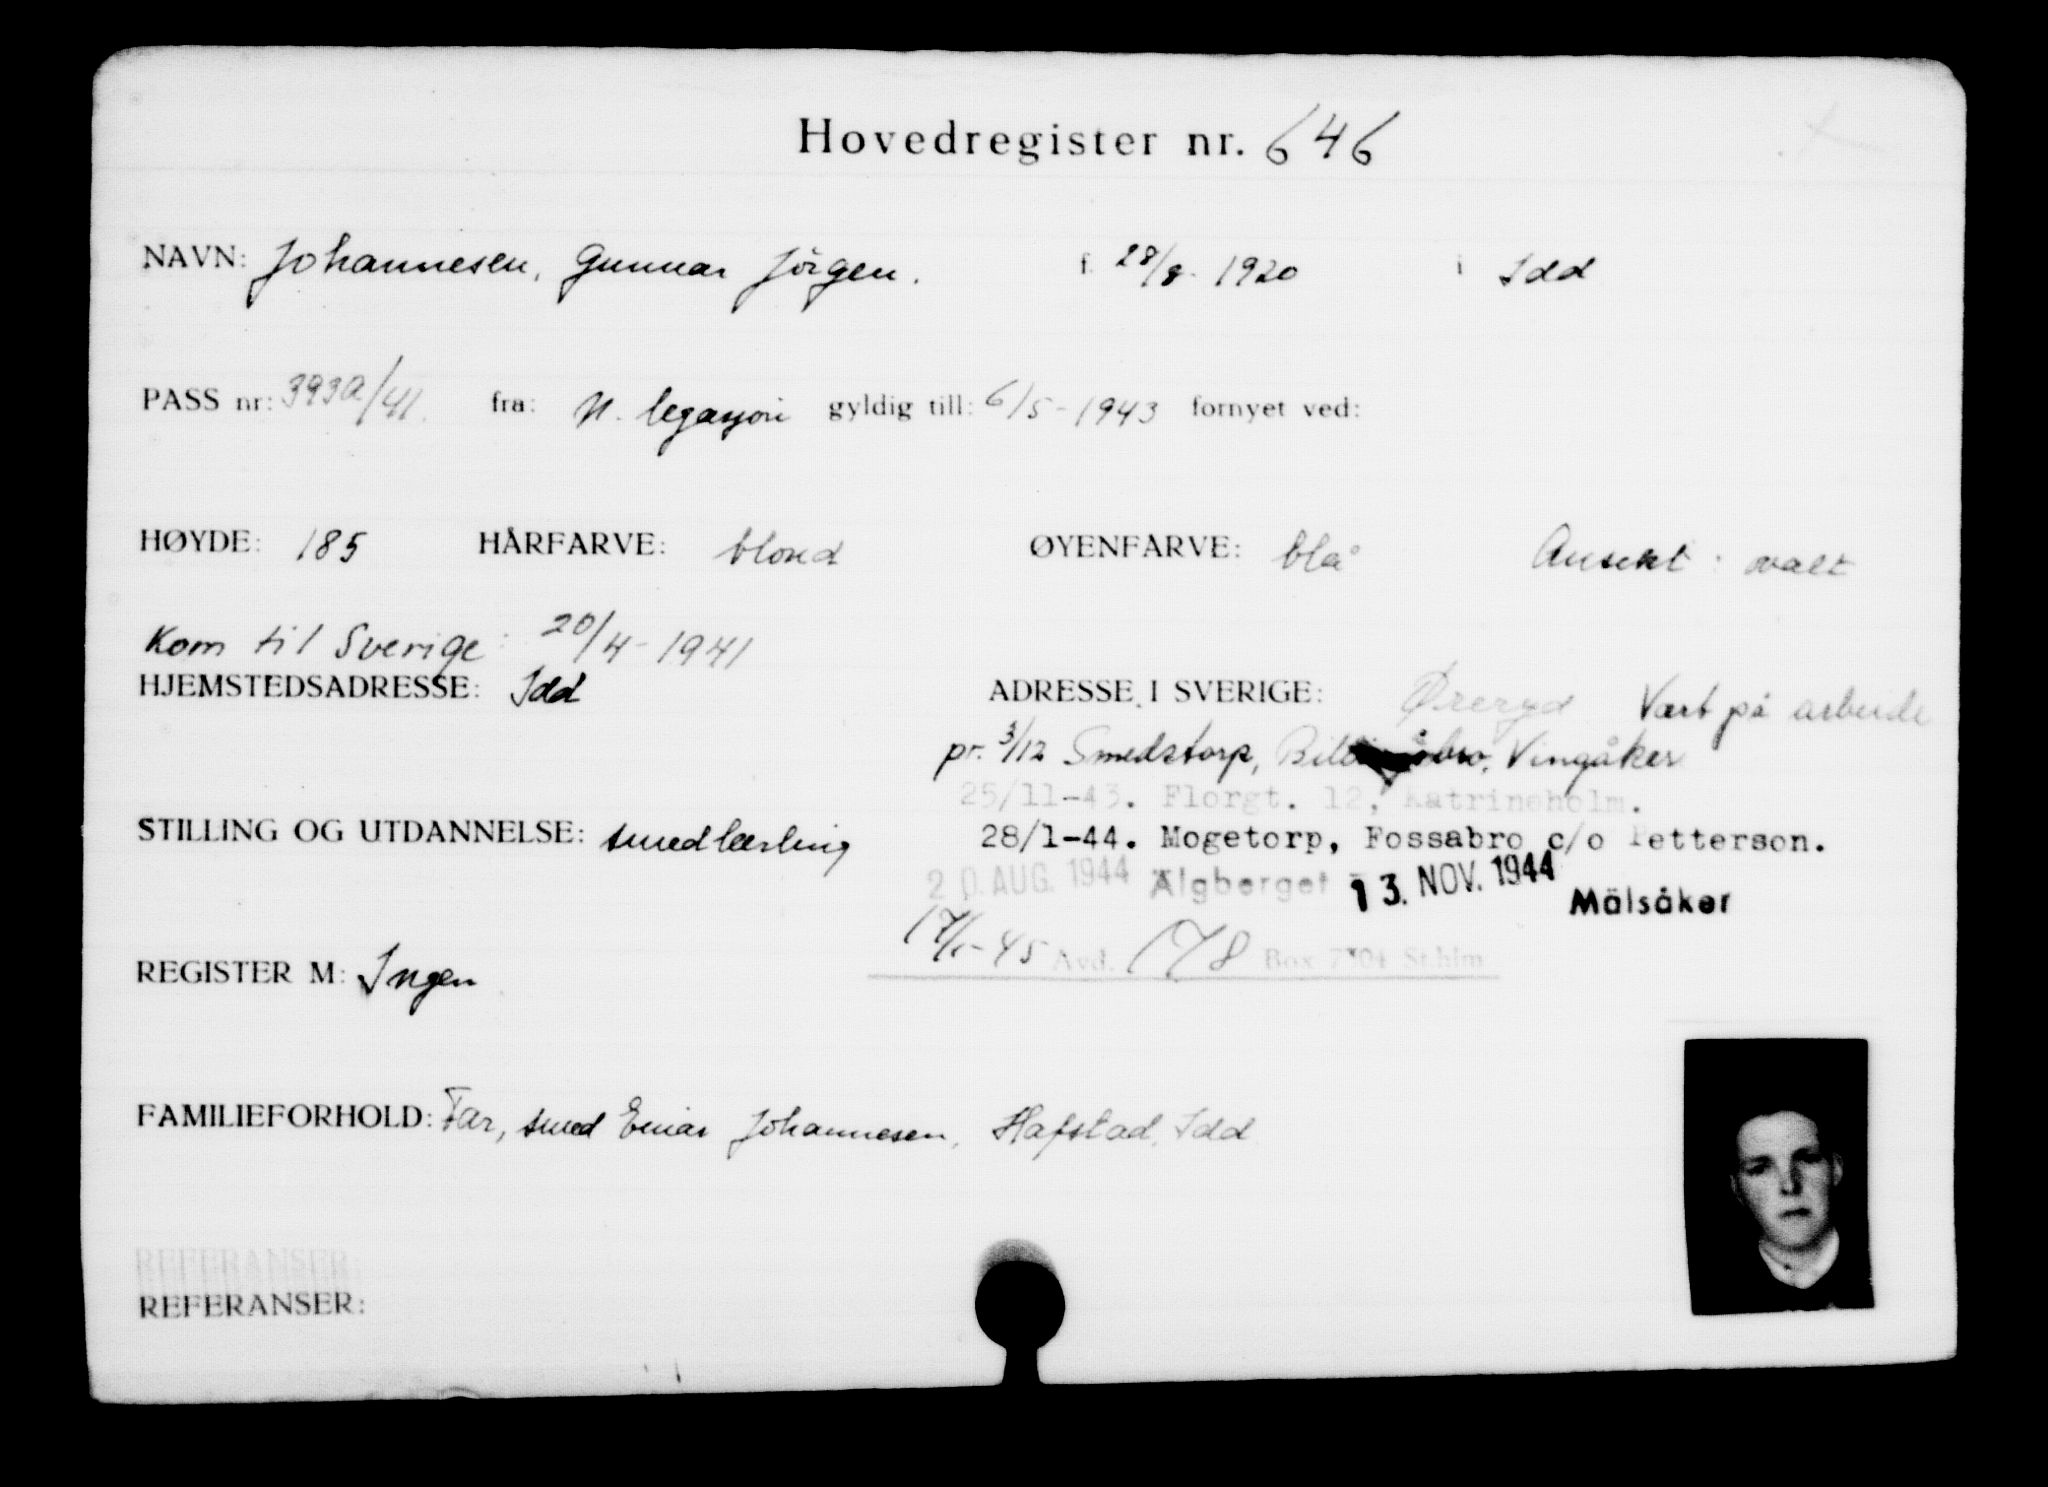 Hovedregister nr. 646
NAVN: Johannesen, Gunnar Jörgen. f. 28/8- 1920 i Idd
PASS nr: 393a/41. fra: N. legasjon gyldig till: 6/5-1943 fornyet ved:
HØYDE: 185 HÅRFARVE: blond ØYENFARVE: blå Ansikt: ovalt
Kom til Sverige: 20/4-1941
HJEMSTEDSADRESSE: Idd ADRESSE I SVERIGE: Øreryd Vært på arbeide
pr. 3/12 Smedstorp, Vingåker
25/11-43. Florgt. 12, Katrineholm.
STILLING OG UTDANNELSE: smedlærling 28/1-44. Mogetorp, Fossabro c/o Petterson.
20. AUG. 1944 Älgberget 13. NOV. 1944 Mälsåker
45 Avd. 178 Box 7704 St.hlm
REGISTER M: Ingen
FAMILIEFORHOLD: Far, smed Einar Johannesen, Hafstad, Idd
REFERANSER:
REFERANSER: